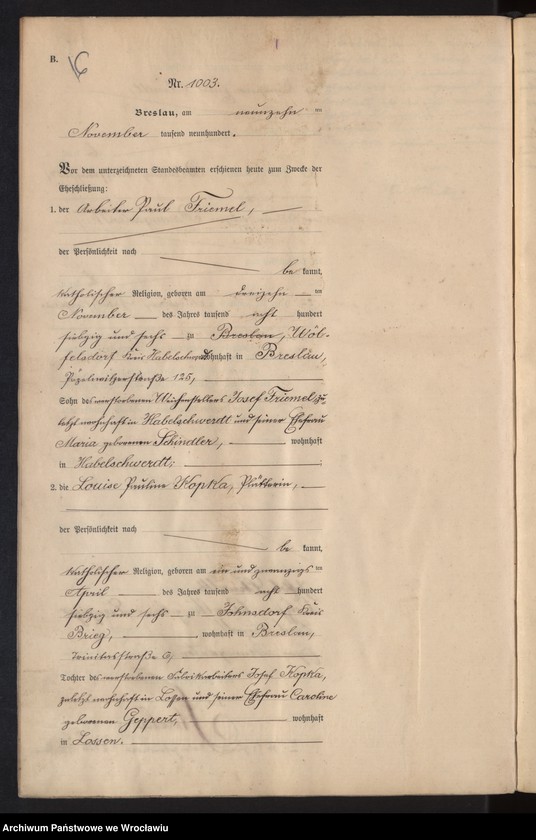 B.
16
Nr. 1003.
Breslau, am neunzehn ten
November tausend neunhundert.
Vor dem unterzeichneten Standesbeamten erschienen heute zum Zwecke der
Eheschließung:
1. der Arbeiter Paul Triemel,
der Persönlichkeit nach
be kannt,
katholischer Religion, geboren am dreizehn ten
November des Jahres tausend acht hundert
siebzig und sechs zu Breslau, Wöl-
felsdorf Kreis Habelschwerdt wohnhaft in Breslau,
125,
Sohn des verstorbenen Weichenstellers Josef Triemel, zu-
letzt wohnhaft in Habelschwerdt und seiner Ehefrau
Maria geborenen Schindler, wohnhaft
in Habelschwerdt;
2. die Louise Pauline Kopka, Plätterin,
der Persönlichkeit nach
be kannt,
katholischer Religion, geboren am ein und zwanzigs ten
April des Jahres tausend acht hundert
siebzig und sechs zu Johnsdorf Kreis
Brieg, wohnhaft in Breslau,
Trinitasstraße 6,
Tochter des verstorbenen Fabrikarbeiters Josef Kopka,
zuletzt wohnhaft in Lossen und seiner Ehefrau Caroline
geborenen Geppert, wohnhaft
in Lossen.
Archiwum Państwowe we Wrocławiu